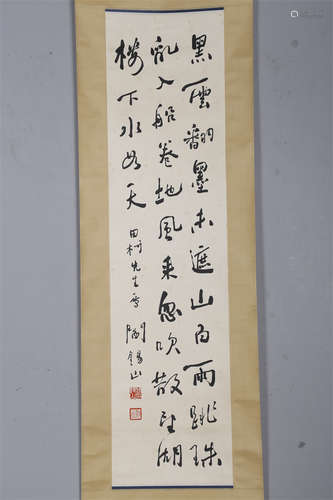 黑雲翻墨未遮山白雨跳珠
亂入船卷地風來忽吹散望湖
樓下水如天
田村先生屬 閻錫山